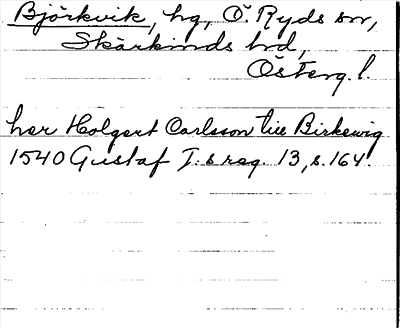 Björkvik, hg, Ö. Ryds sn,
Skärkinds hd,
Österg. l.
her Holgert Carlsson till Birkewig
1540 Gustaf I:s reg. 13, s. 164.